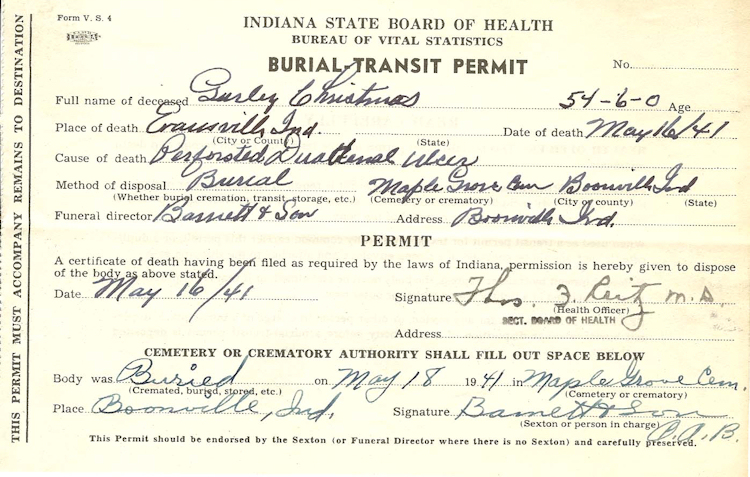 Form V. S. 4
INDIANA STATE BOARD OF HEALTH
BUREAU OF VITAL STATISTICS
BURIAL-TRANSIT PERMIT
No.
Full name of deceased Gurley Christmas 54-6-0 Age
Place of death Evansville Ind. Date of death May 16/41
(City or County) (State)
Cause of death Perforated Duodenal Ulcer
Method of disposal Burial Maple Grove Cem Boonville Ind
(Whether burial cremation, transit, storage, etc.) (Cemetery or crematory) (City or county) (State)
Funeral director Barnett & Son Address Boonville Ind.
PERMIT
A certificate of death having been filed as required by the laws of Indiana, permission is hereby given to dispose
of the body as above stated.
Date May 16/41 Signature Thos. Z. Reitz M.D.
(Health Officer)
SECT. BOARD OF HEALTH
Address
CEMETERY OR CREMATORY AUTHORITY SHALL FILL OUT SPACE BELOW
Body was Buried on May 18 1941 in Maple Grove Cem.
(Cremated, buried, stored, etc.) (Cemetery or crematory)
Place Boonville, Ind. Signature Barnett & Son
(Sexton or person in charge)
This Permit should be endorsed by the Sexton (or Funeral Director where there is no Sexton) and carefully preserved.
THIS PERMIT MUST ACCOMPANY REMAINS TO DESTINATION